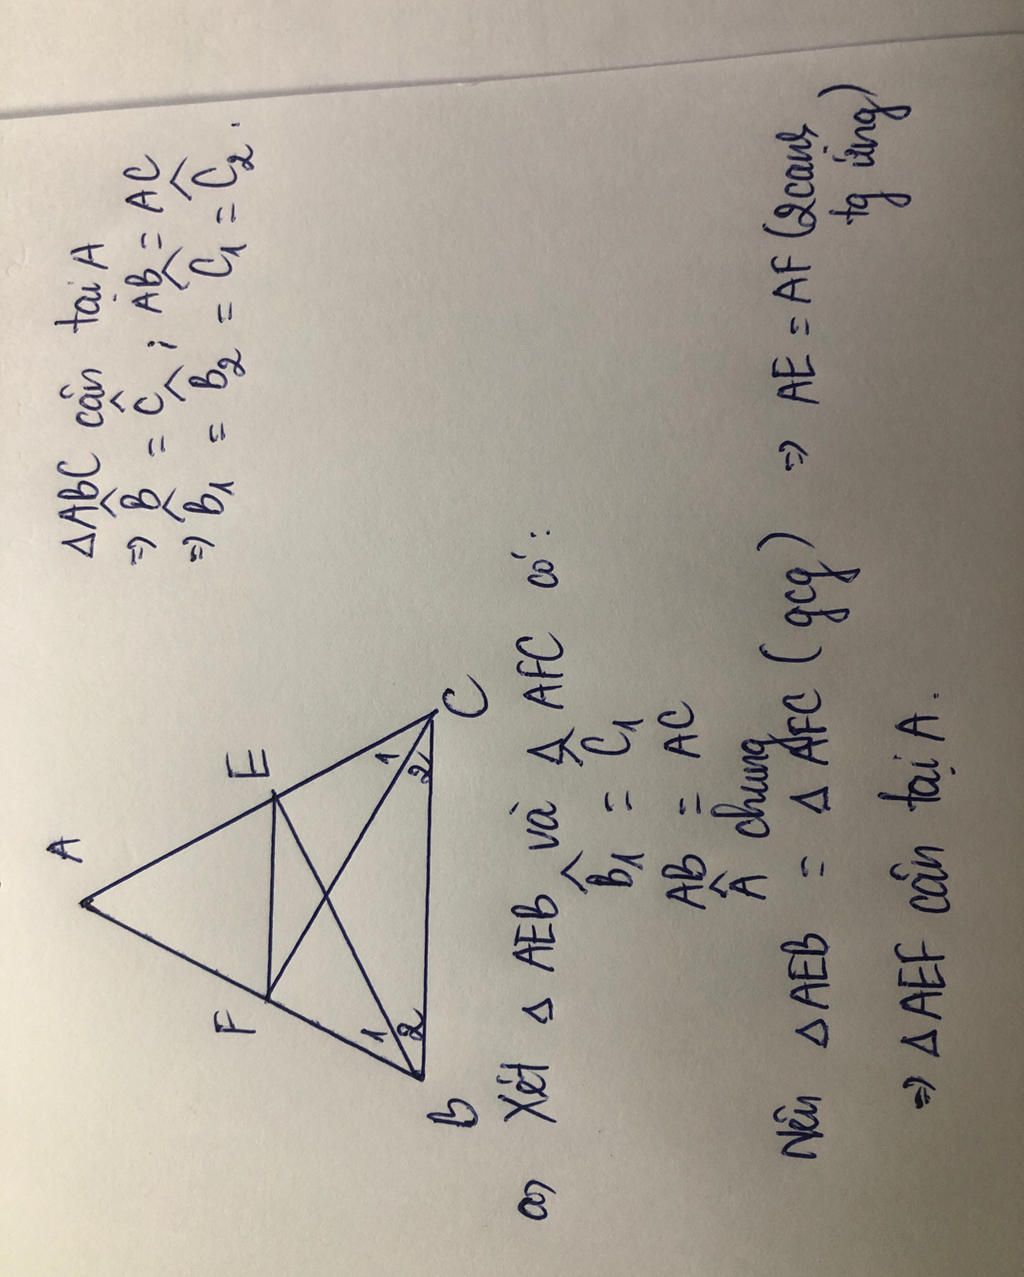 ΔABC cân tại A
=> B̂ = Ĉ ; AB = AC
=> B̂₁ = B̂₂ = Ĉ₁ = Ĉ₂.
A
F
E
1
2
1
2
B
C
a) Xét Δ AEB và Δ AFC có:
B̂₁ = Ĉ₁
AB = AC
Â chung
Nên ΔAEB = Δ AFC (gcg) => AE = AF (2 cạnh
tg ứng)
=> ΔAEF cân tại A.